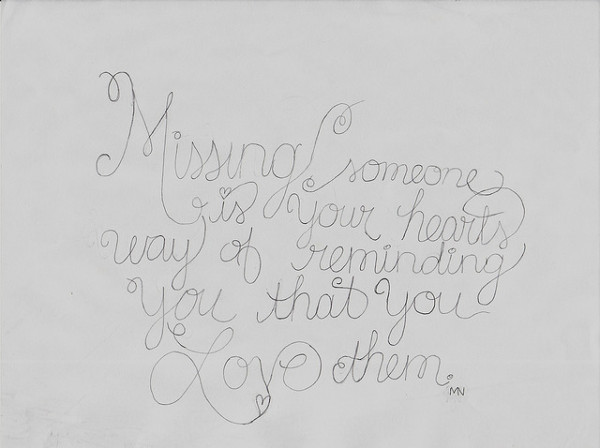 Missing someone
is your hearts
way of reminding
you that you
Love them.
MN